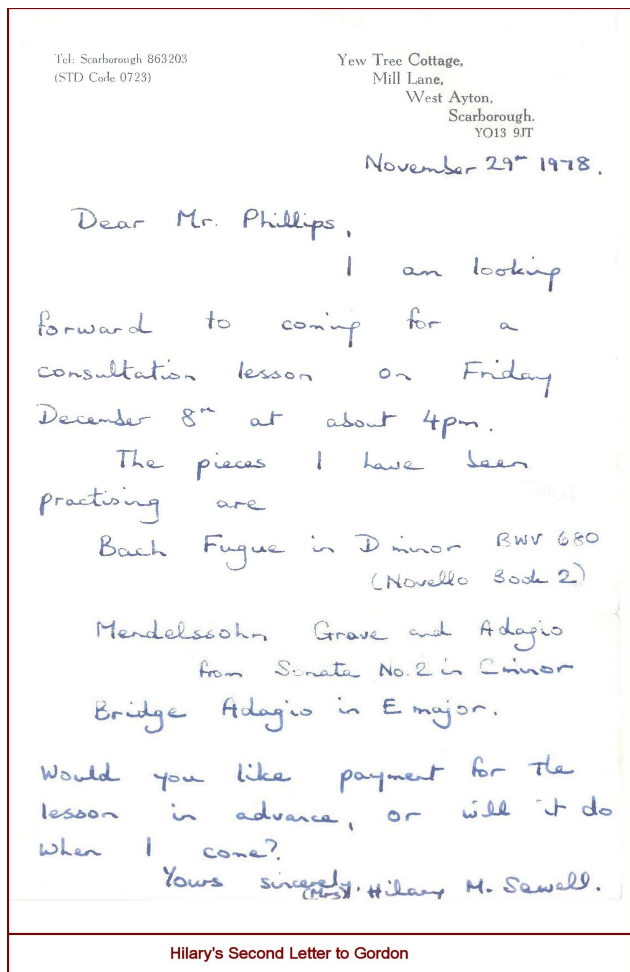 Tel: Scarborough 863203
(STD Code 0723)
Yew Tree Cottage,
Mill Lane,
West Ayton,
Scarborough.
YO13 9JT
November 29th 1978.
Dear Mr. Phillips,
I am looking
forward to coming for a
consultation lesson on Friday
December 8th at about 4pm.
The pieces I have been
practising are
Bach Fugue in D minor BWV 680
(Novello Book 2)
Mendelssohn Grave and Adagio
from Sonata No. 2 in C minor
Bridge Adagio in E major.
Would you like payment for the
lesson in advance, or will it do
when I come?
Yours sincerely,
(Mrs) Hilary M. Sewell.
Hilary's Second Letter to Gordon